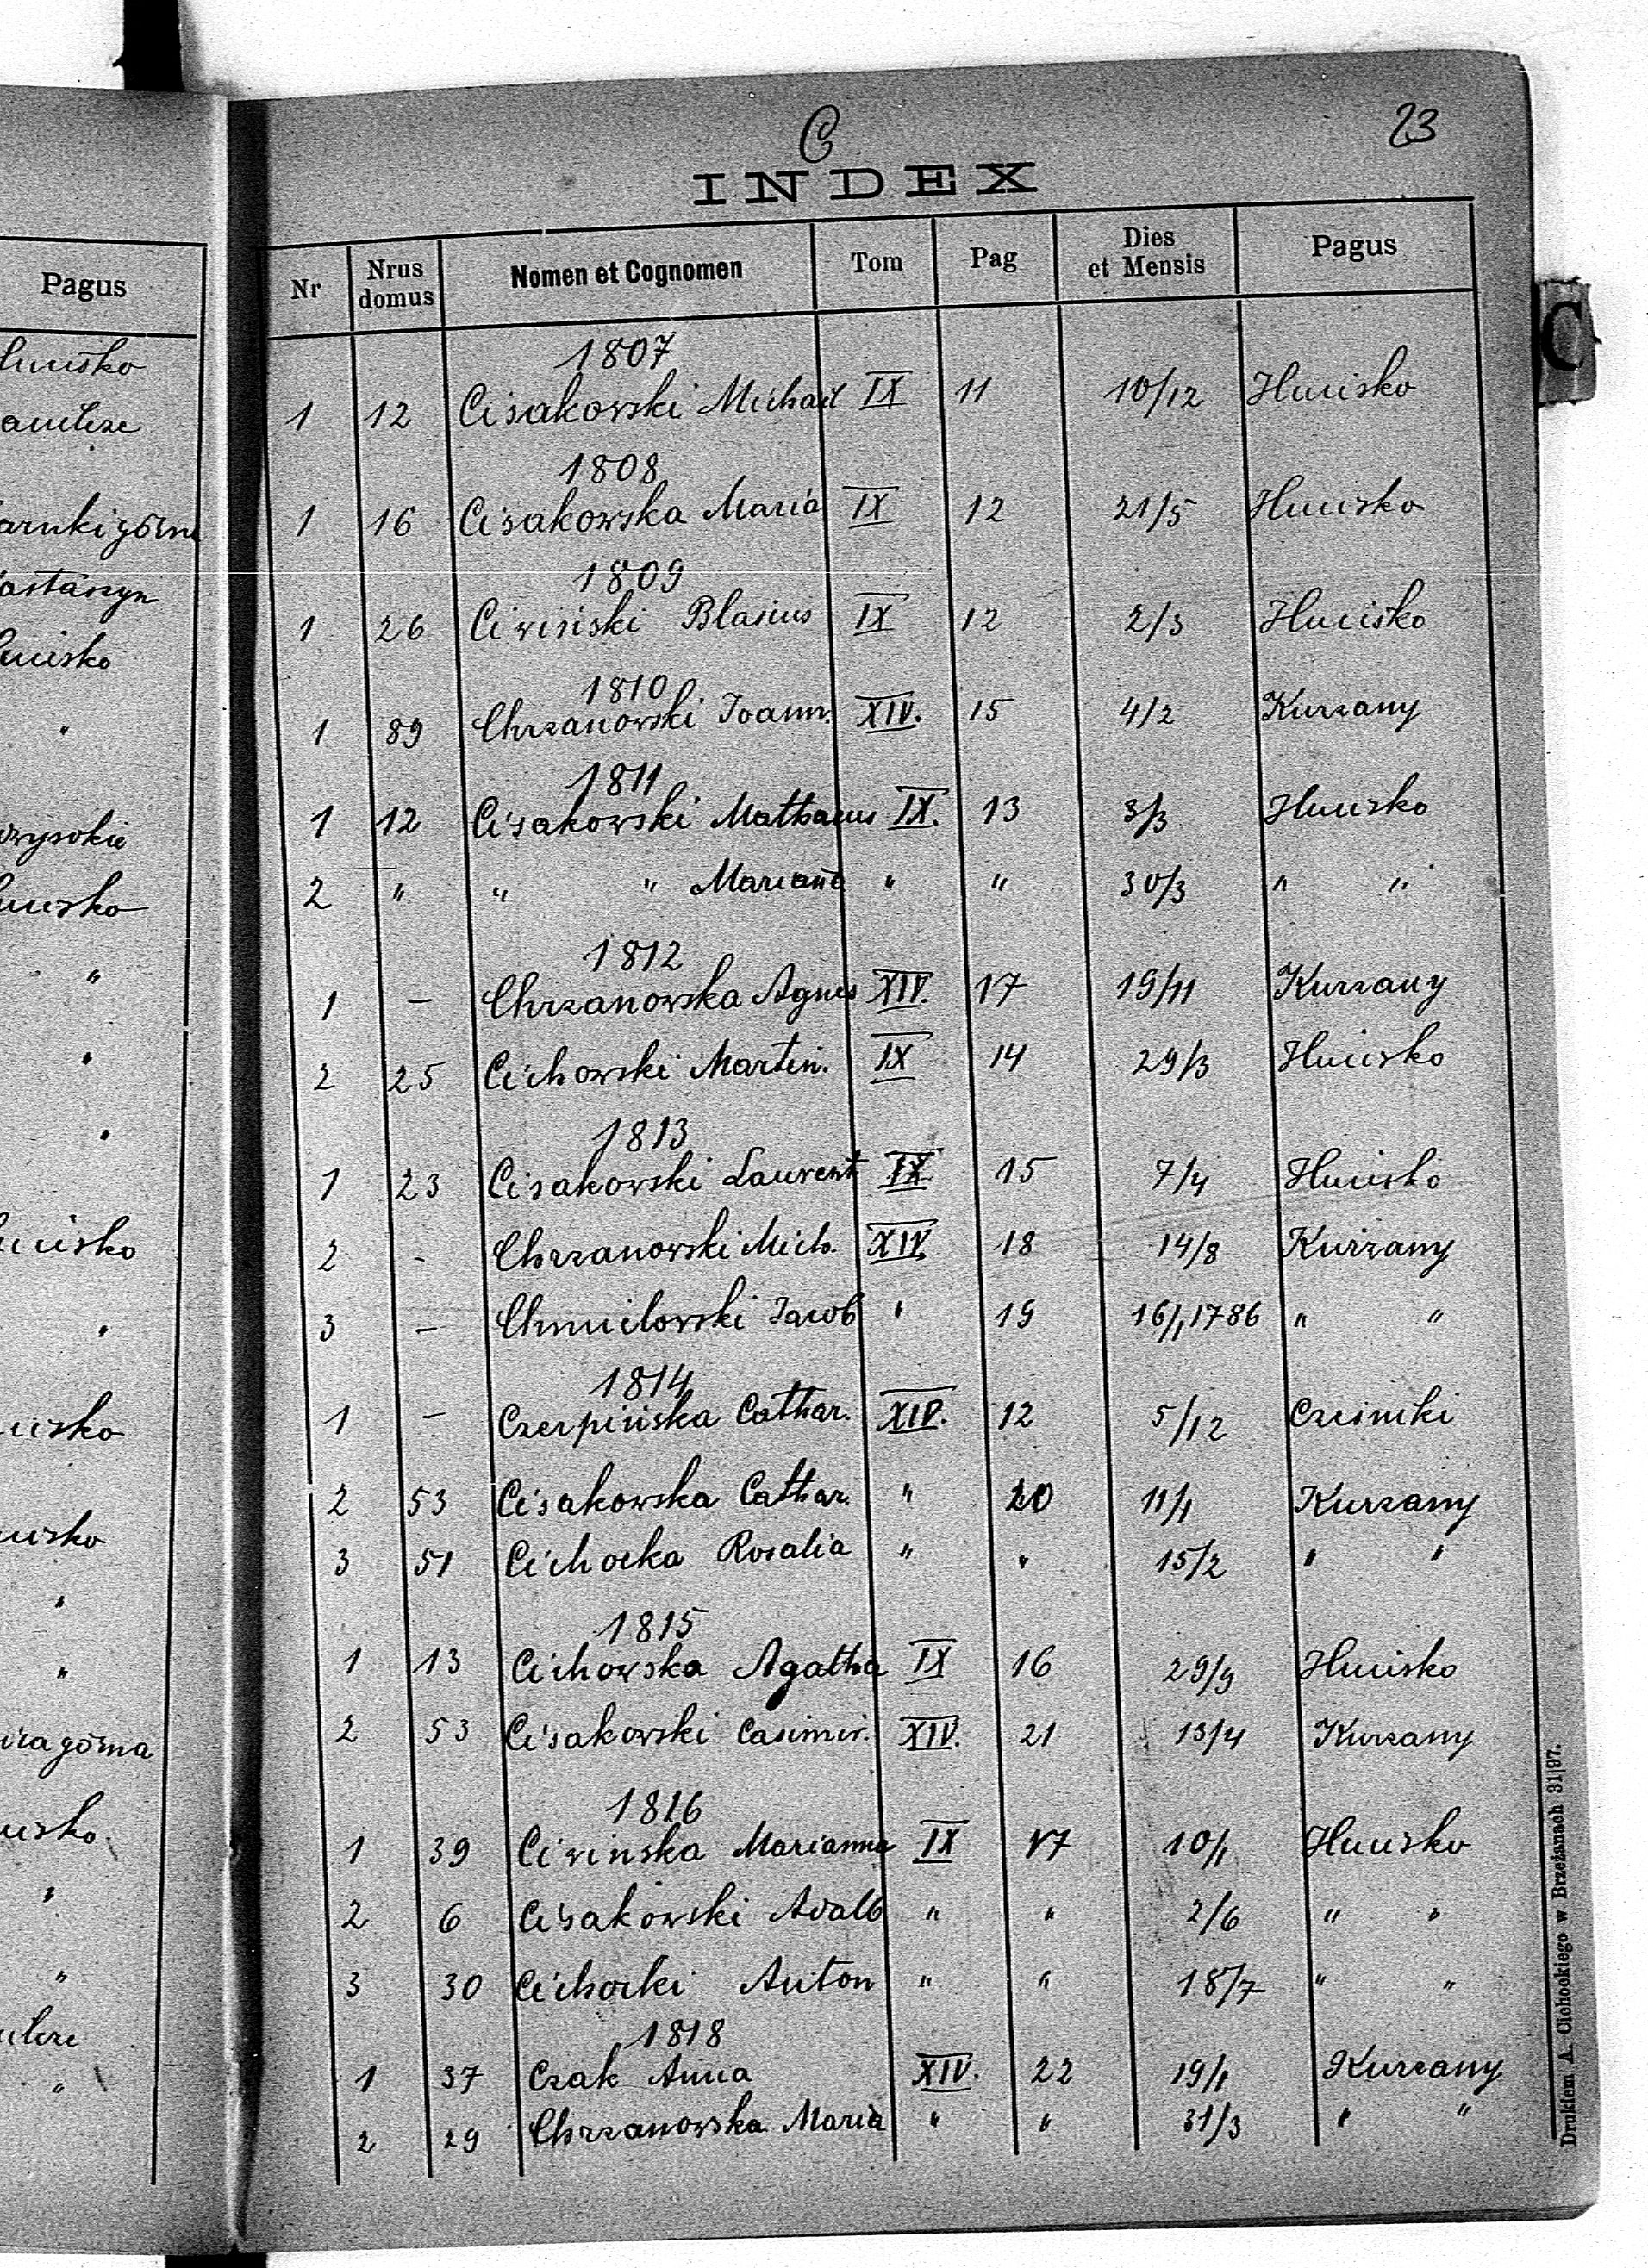 C
23
INDEX
Pagus
Nr Nrus domus Nomen et Cognomen Tom Pag Dies et Mensis Pagus
1807
1 12 Cisakowski Michael IX 11 10/12 Hucisko
1808
1 16 Cisakowska Maria IX 12 21/5 Hucisko
1809
1 26 Ciwiński Blasius IX 12 2/3 Hucisko
1810
1 89 Chrzanowski Joann. XIV. 15 4/2 Kurzany
1811
1 12 Cisakowski Mathaeus IX. 13 3/3 Hucisko
2 " " " Marianna " " 30/3 " "
1812
1 – Chrzanowska Agnes XIV. 17 19/11 Kurzany
2 25 Cichowski Martin. IX 14 29/3 Hucisko
1813
1 23 Cisakowski Laurent IX 15 7/4 Hucisko
2 - Chrzanowski Mich. XIV. 18 14/8 Kurzany
3 – Chmielowski Jacob " 19 16/1 1786 " "
1814
1 – Czerpińska Cathar. XIV. 12 5/12
2 53 Cisakowska Cathar. " 20 11/1 Kurzany
3 51 Cichocka Rosalia " " 15/2 " "
1815
1 13 Cichowska Agatha IX 16 29/9 Hucisko
2 53 Cisakowski Casimir. XIV. 21 13/4 Kurzany
1816
1 39 Ciwinska Marianna IX 17 10/1 Hucisko
2 6 Cisakowski Adalb " " 2/6 " "
3 30 Cichocki Anton " " 18/7 " "
1818
1 37 Czak Anna XIV. 22 19/1 Kurzany
2 29 Chrzanowska Maria " " 31/3 " "
C
Drukiem A. Cichockiego w Brzeżanach 31|97.